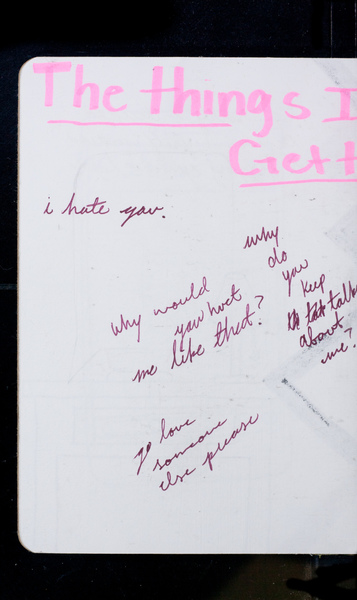 The things I
Gett
i hate you.
why would
you hurt
me like that?
why
do
you
keep
talk
about
me?
go love
someone
else please